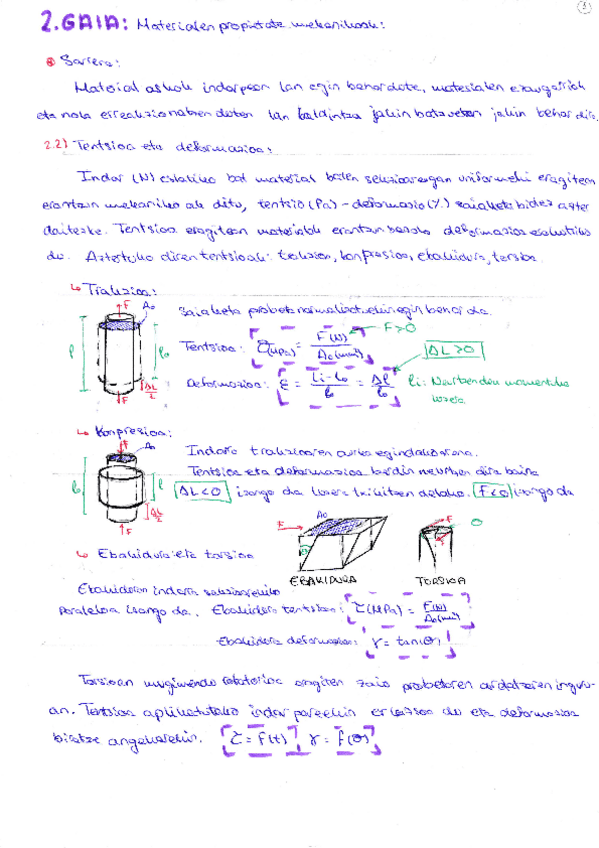 3
2.GAIA: Materialen propietate mekanikoak:
Sarrera:
Material askok indarpean lan egin behar dute, materialen ezaugarriak
eta nola erreakzionatzen duten lan baldintza jakin batzuetan jakin behar dira.
2.2) Tentsioa eta deformazioa:
Indar (N) estatiko bat material baten sekzioarengan uniformeki eragitean
erantzun mekanikoak ditu, tentsio (Pa) - deformazio (%) saiaketa bidez azter
daitezke. Tentsioa eragitean materialak erantzun bezala deformazioa
du. Aztertuko diren tentsioak: trakzioa, konpresioa, ebakidura, tortsioa.
↳ Trakzioa:
F A₀
saiaketa probeta normalizatuekin egin behar da.
l l₀ ΔL/2 F
Tentsioa: σ(MPa) = F(N)/A₀(mm²) F>0
ΔL>0
Deformazioa: ε = (li-l₀)/l₀ = Δl/l₀ li: Neurtzen den momentuko
luzera.
↳ Konpresioa:
F A₀
Indarra trakzioaren aurka egindakoa da.
Tentsioa eta deformazioa berdin neurtzen dira baina
l₀ l ΔL/2 F
ΔL<0 izango da luzera txikitzen delako. F<0 izango da
↳ Ebakidura eta torsioa
F A₀ θ F θ
EBAKIDURA TORSIOA
Ebakiduran indarra sekzioarekiko
paraleloa izango da. Ebakidura tentsioa: τ(MPa) = F(N)/A₀(mm²)
Ebakidura deformazioa: γ = tan(θ)
Torsioan mugimendu rotatorioa eragiten zaio probetaren ardatzaren inguru-
an. Tentsioa aplikatutako indar parekin erlazioa du eta deformazioa
biratze angeluarekin. τ = f(t) γ = f(θ)